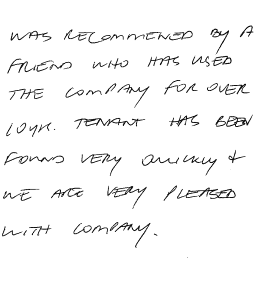 WAS RECOMMENDED BY A
FRIEND WHO HAS USED
THE COMPANY FOR OVER
10YR. TENANT HAS BEEN
FOUND VERY QUICKLY +
WE ARE VERY PLEASED
WITH COMPANY.